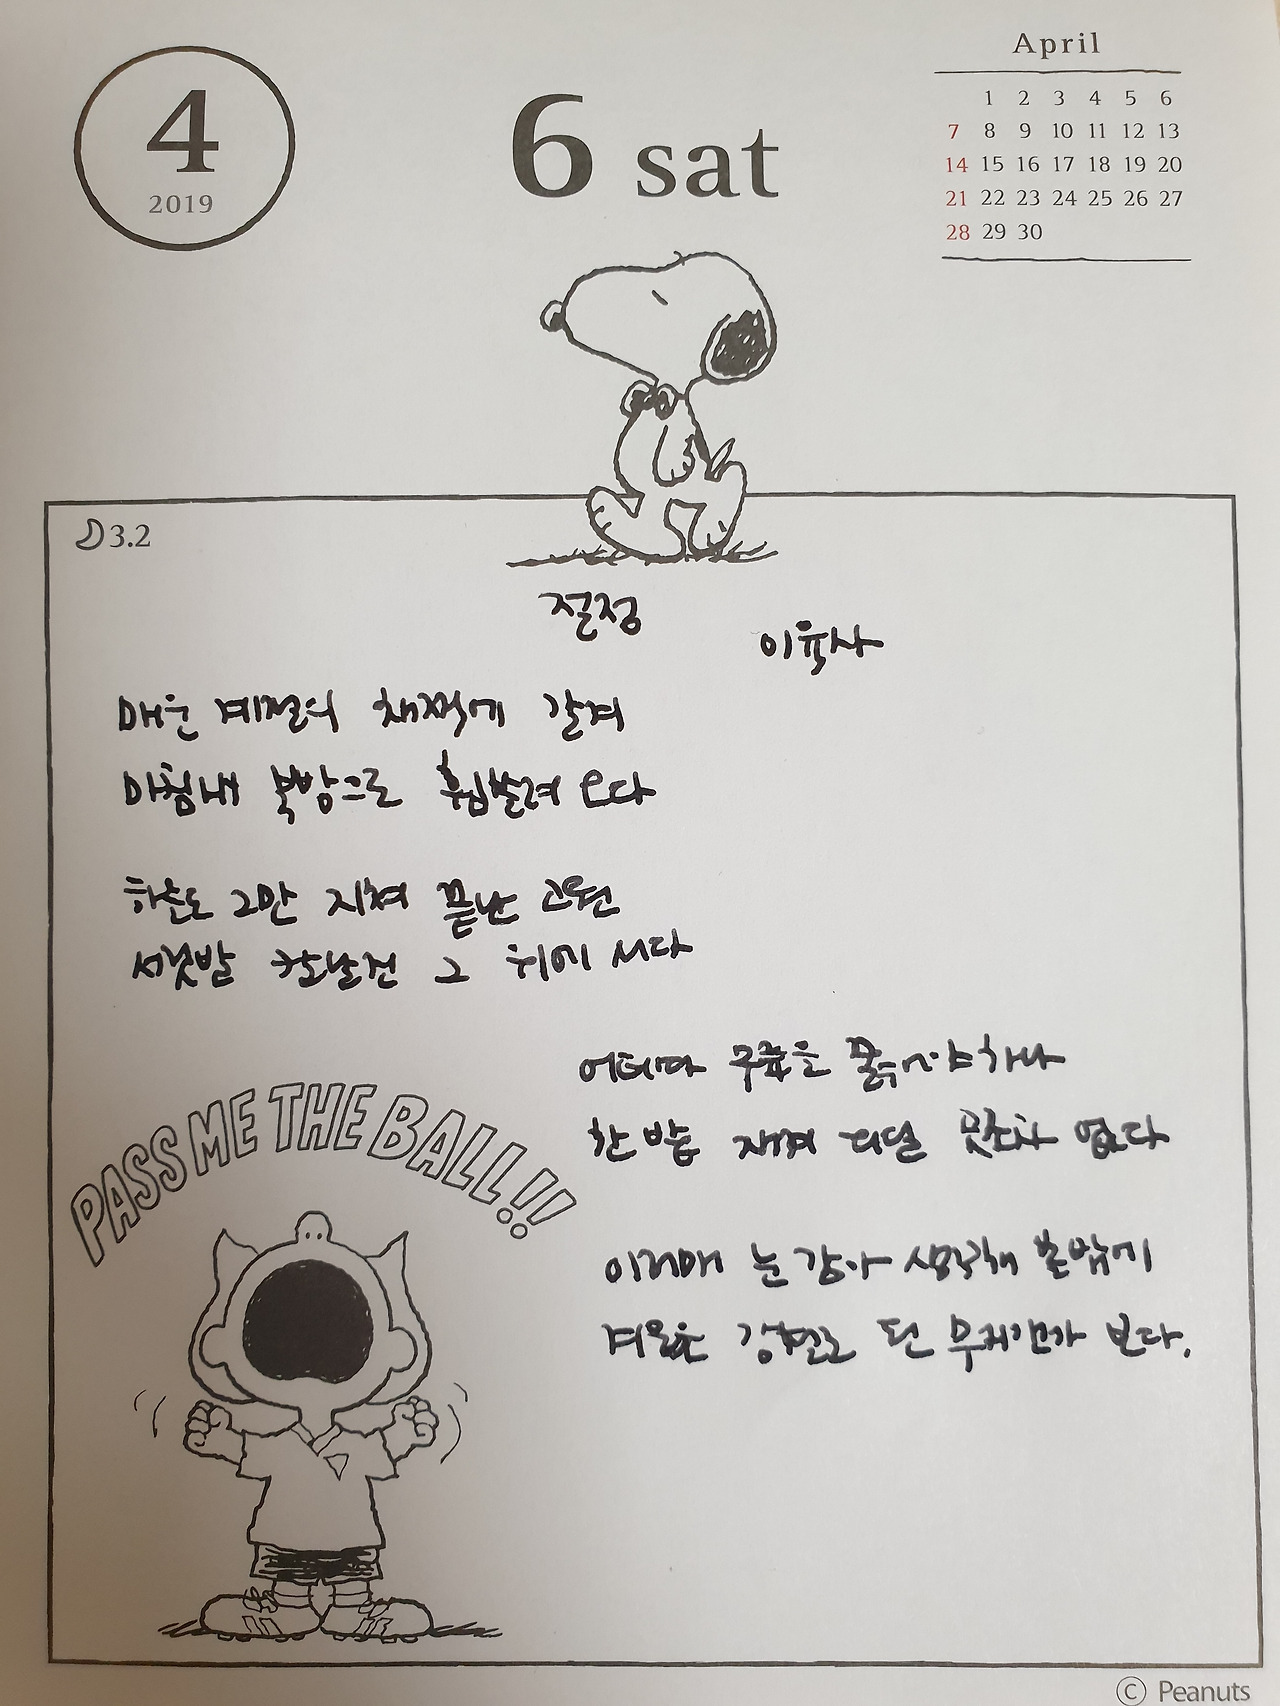 4
2019
6 sat
April
1 2 3 4 5 6
7 8 9 10 11 12 13
14 15 16 17 18 19 20
21 22 23 24 25 26 27
28 29 30
3.2
절정
이육사
매운 계절의 채찍에 갈겨
마침내 북방으로 휩쓸려 오다
하늘도 그만 지쳐 끝난 고원
서릿발 칼날진 그 위에 서다
어데다 무릎을 꿇어야 하나
한 발 재겨 디딜 곳조차 없다
이러매 눈 감아 생각해 볼밖에
겨울은 강철로 된 무지갠가 보다.
PASS ME THE BALL!!
© Peanuts